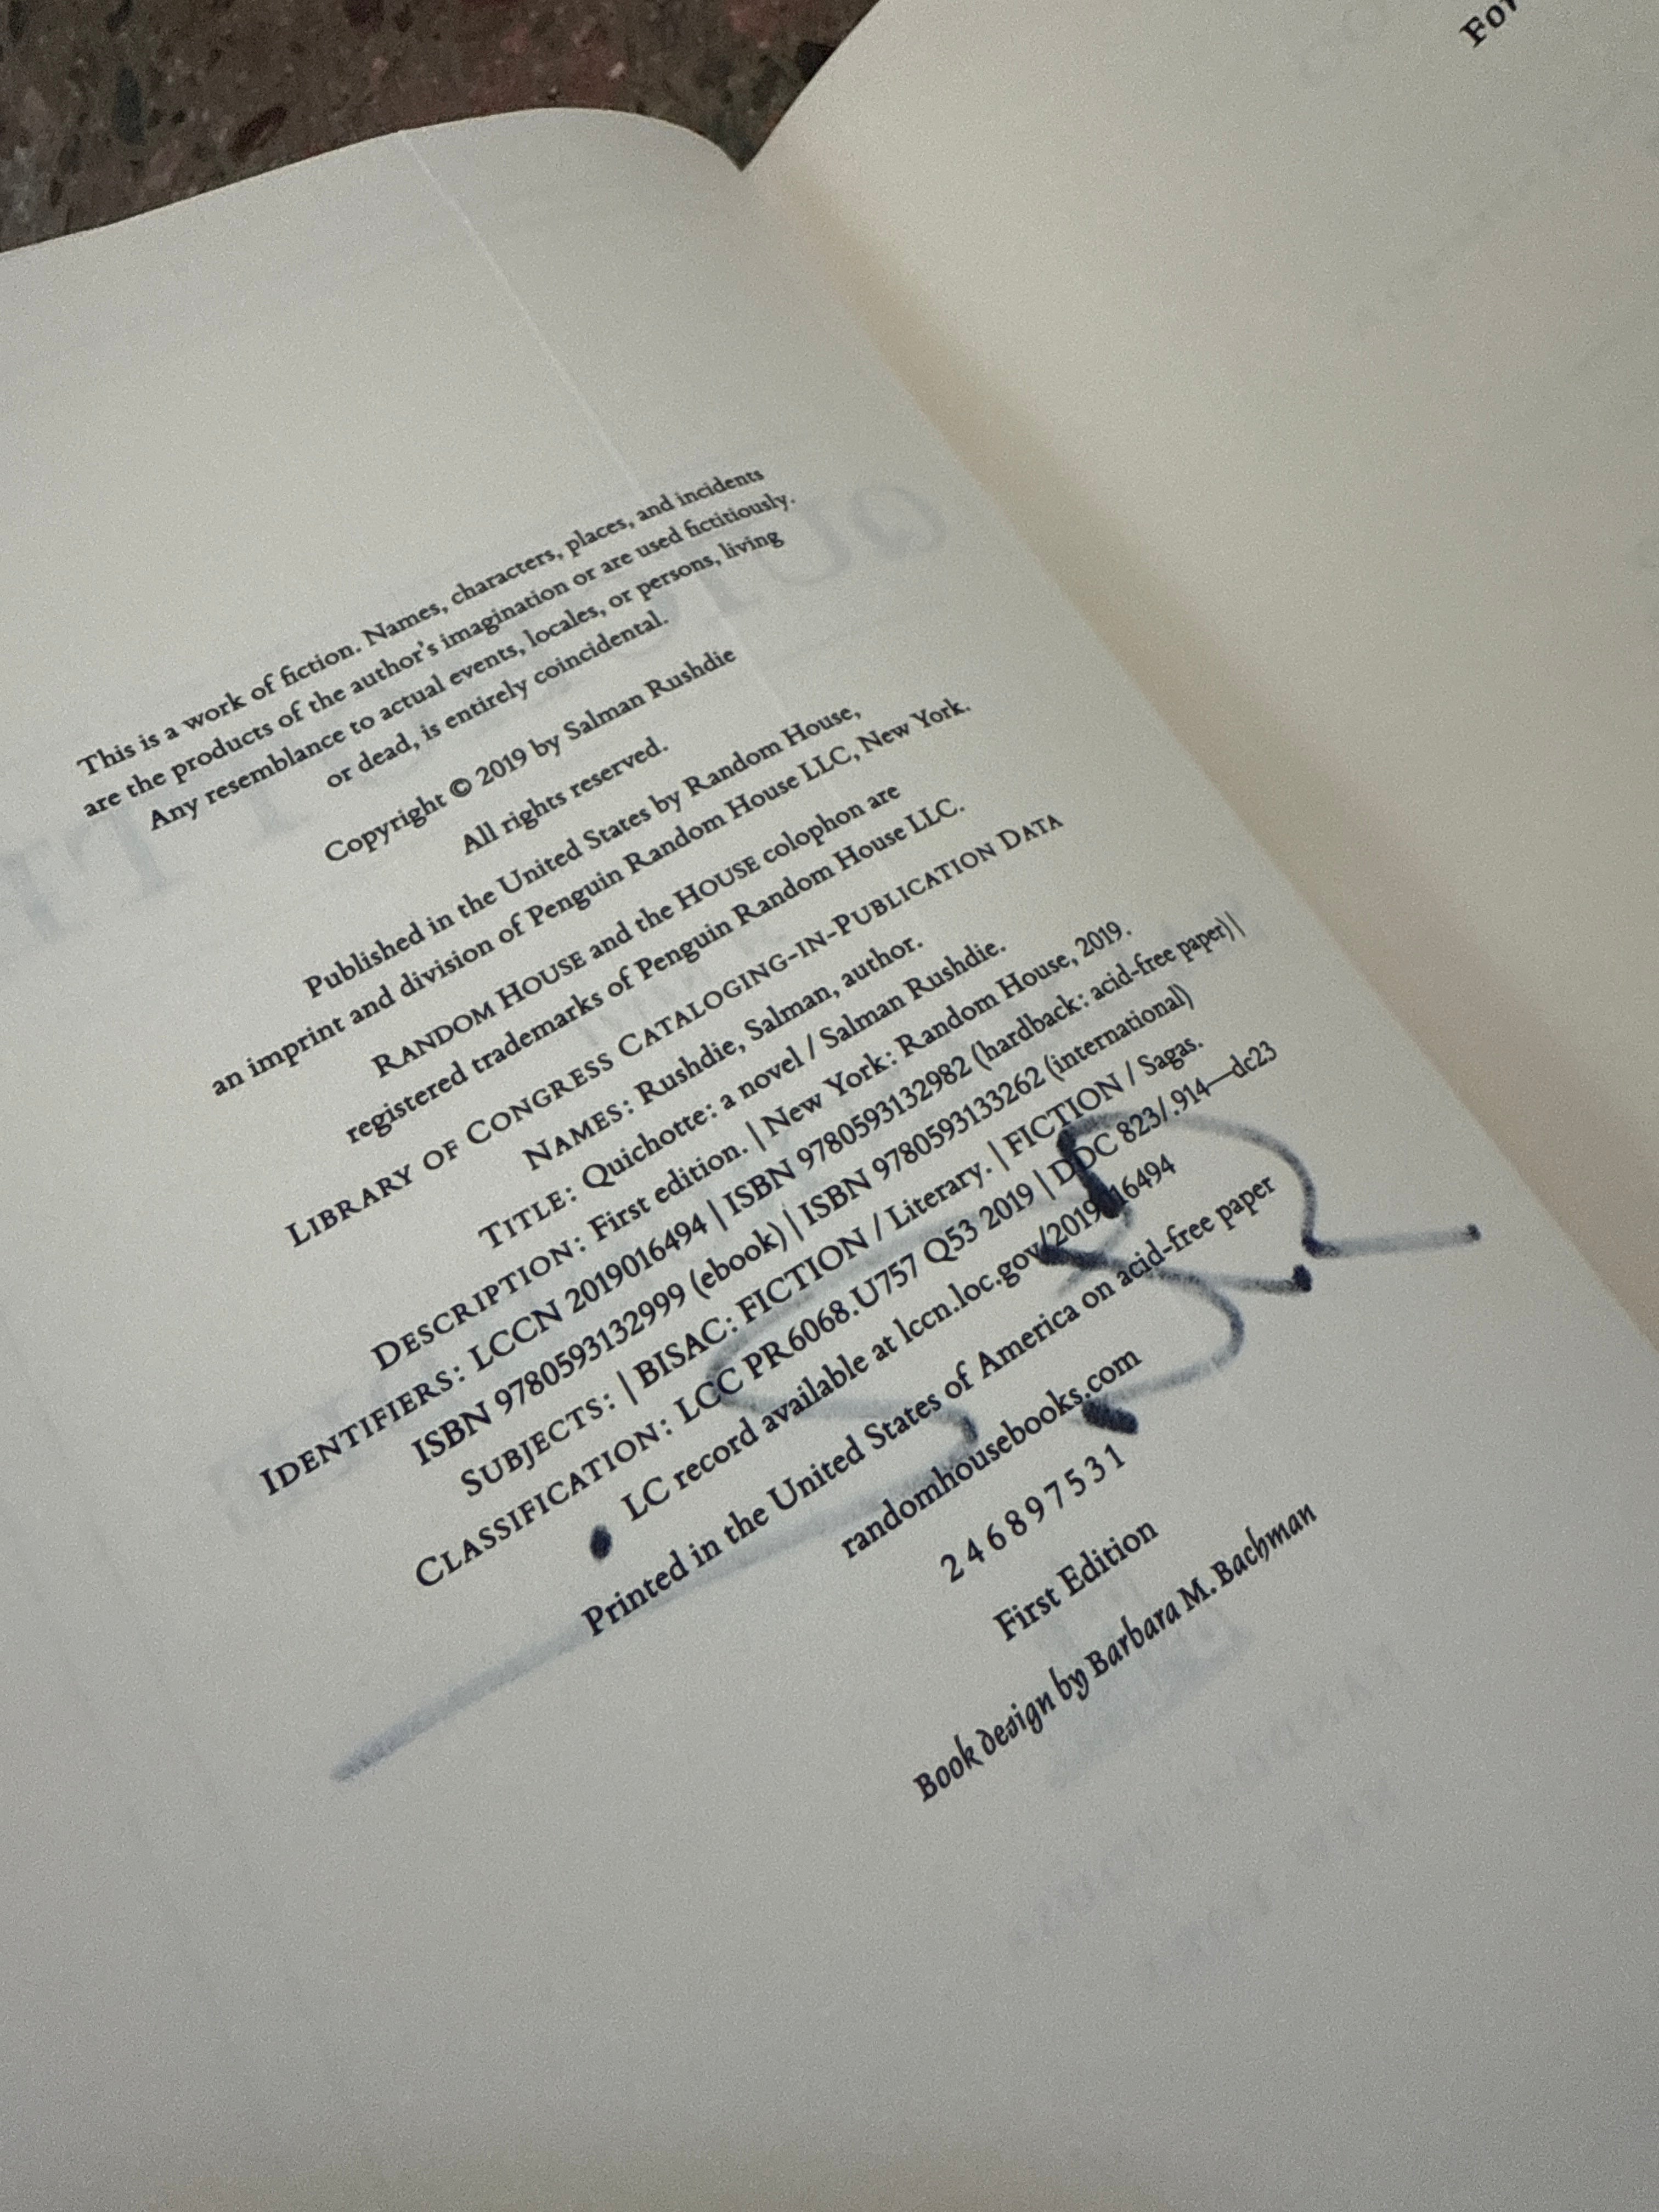 This is a work of fiction. Names, characters, places, and incidents
are the products of the author's imagination or are used fictitiously.
Any resemblance to actual events, locales, or persons, living
or dead, is entirely coincidental.
Copyright © 2019 by Salman Rushdie
All rights reserved.
Published in the United States by Random House,
an imprint and division of Penguin Random House LLC, New York.
RANDOM HOUSE and the HOUSE colophon are
registered trademarks of Penguin Random House LLC.
LIBRARY OF CONGRESS CATALOGING-IN-PUBLICATION DATA
NAMES: Rushdie, Salman, author.
TITLE: Quichotte: a novel / Salman Rushdie.
DESCRIPTION: First edition. | New York: Random House, 2019.
IDENTIFIERS: LCCN 2019016494 | ISBN 9780593132982 (hardback: acid-free paper) |
ISBN 9780593132999 (ebook) | ISBN 9780593133262 (international)
SUBJECTS: | BISAC: FICTION / Literary. | FICTION / Sagas.
CLASSIFICATION: LCC PR6068.U757 Q53 2019 | DDC 823/.914—dc23
LC record available at lccn.loc.gov/2019016494
Printed in the United States of America on acid-free paper
randomhousebooks.com
2 4 6 8 9 7 5 3 1
First Edition
Book design by Barbara M. Bachman